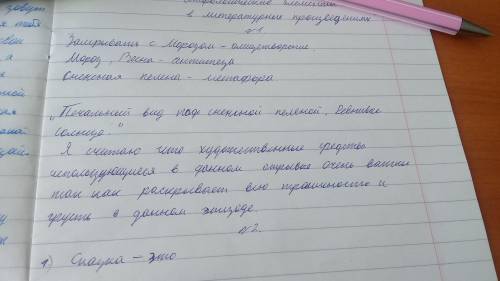 завут
в литературных произведениях
№1
Замиривать с Морозом - олицетворение
Мороз, Весна - антитеза
Снежная пелена - метафора
"Печальный вид под снежной пеленой, Ревнивое
солнце."
Я считаю что художественные средства
использующиеся в данном отрывке очень важны
так как раскрывает всю трагичность и
грусть в данном эпизоде.
№2
1) Сказка - это